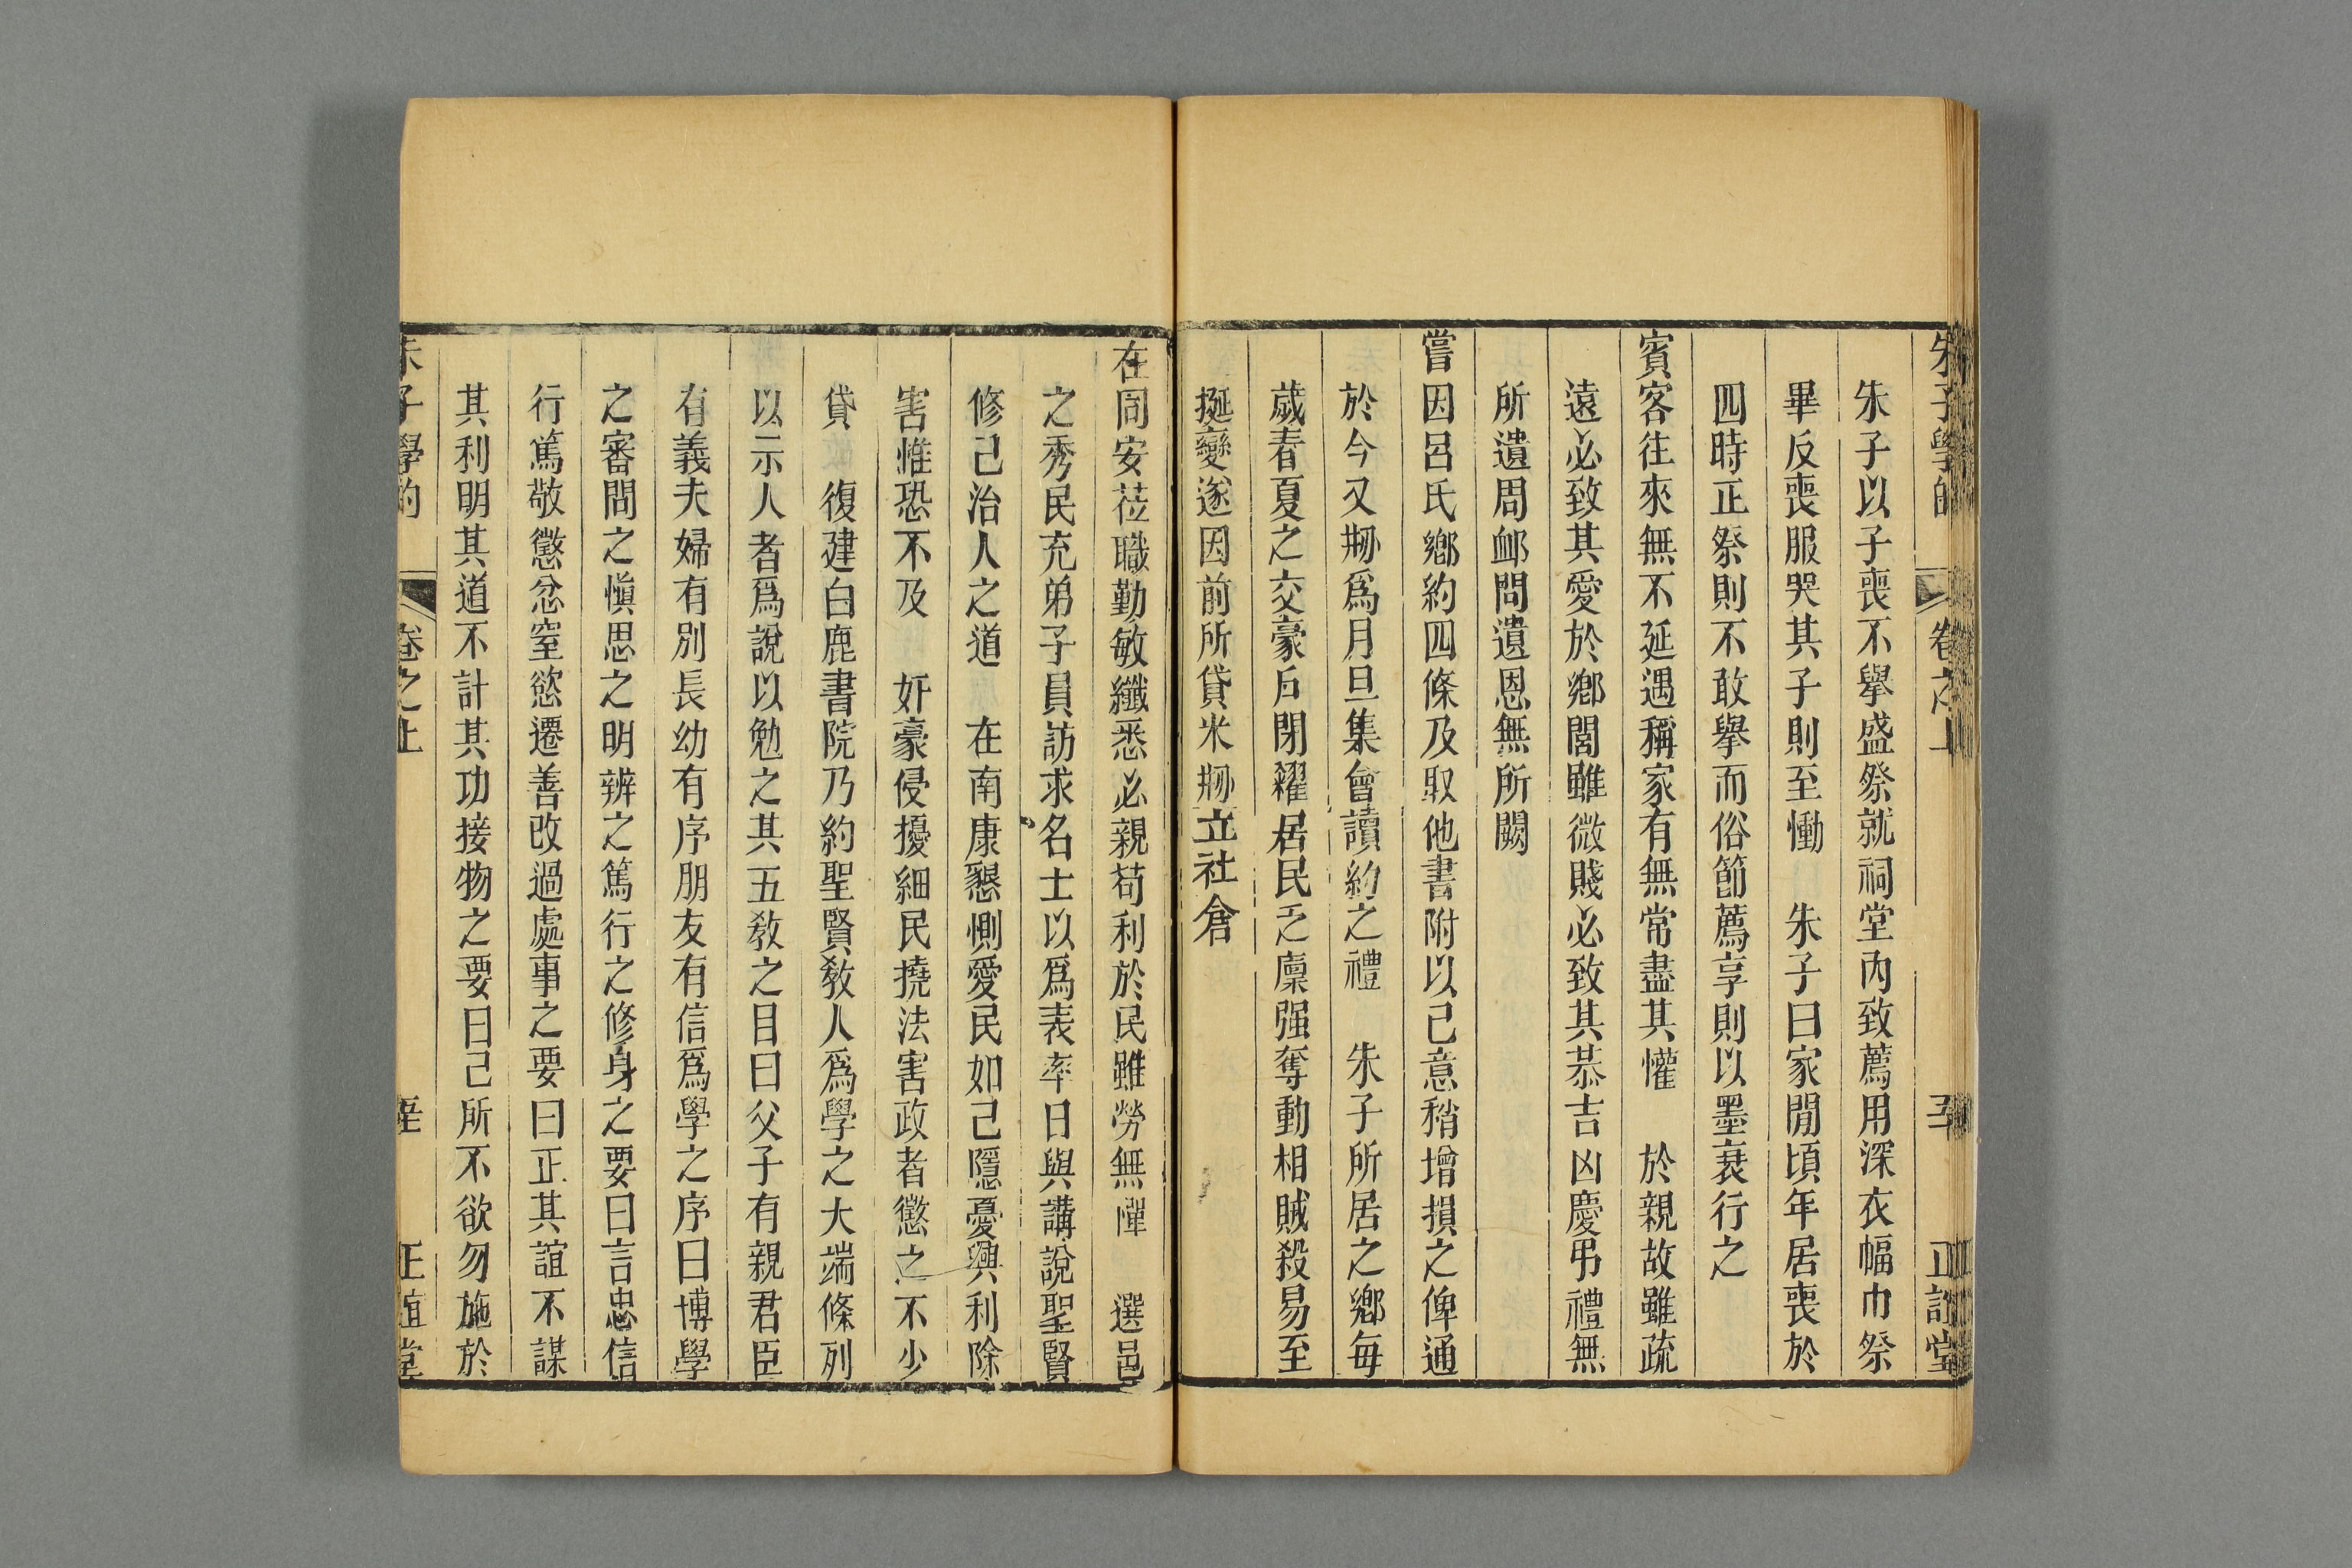 朱子學的 卷之上 正誼堂
朱子以子喪不舉盛祭就祠堂內致薦用深衣幅巾祭
畢反喪服哭其子則至慟 朱子曰家閒頃年居喪於
四時正祭則不敢舉而俗節薦享則以墨衰行之
賓客往來無不延遇稱家有無常盡其懽 於親故雖疏
遠必致其愛於鄉閭雖微賤必致其恭吉凶慶弔禮無
所遺周䘏問遺恩無所闕
嘗因呂氏鄉約四條及取他書附以己意稍增損之俾通
於今又剏爲月旦集會讀約之禮 朱子所居之鄉每
歲春夏之交豪戶閉糴居民乏廩强奪動相賊殺易至
挻變遂因前所貸米剏立社倉
在同安莅職勤敏纖悉必親苟利於民雖勞無憚 選邑
之秀民充弟子員訪求名士以爲表率日與講說聖賢
修己治人之道 在南康懇惻愛民如己隱憂興利除
害惟恐不及 奸豪侵擾細民撓法害政者懲之不少
貸 復建白鹿書院乃約聖賢敎人爲學之大端條列
以示人者爲說以勉之其五敎之目曰父子有親君臣
有義夫婦有別長幼有序朋友有信爲學之序曰博學
之審問之愼思之明辨之篤行之修身之要曰言忠信
行篤敬懲忿窒慾遷善改過處事之要曰正其誼不謀
其利明其道不計其功接物之要曰己所不欲勿施於
朱子學的 卷之上 正誼堂